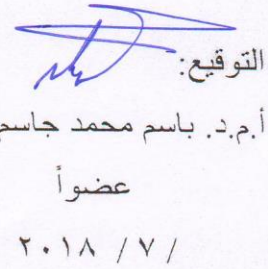 التوقيع:
أ.م.د. باسم محمد جاسم
عضواً
/ ٧ / ٢٠١٨